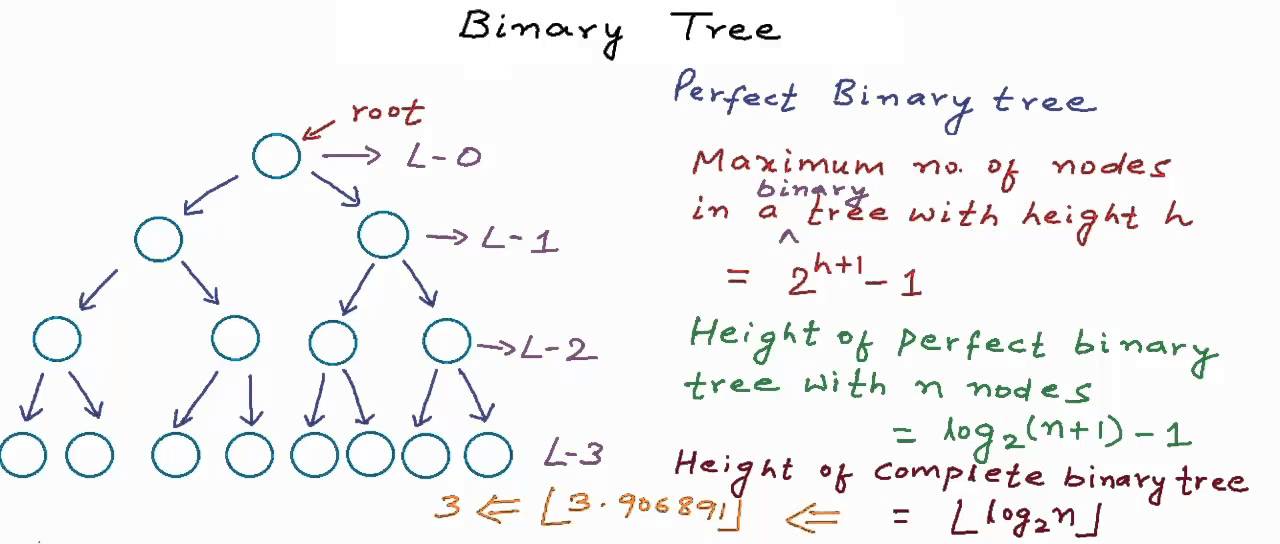 Binary Tree
root
L-0
L-1
L-2
L-3
Perfect Binary tree
Maximum no. of nodes
in a binary tree with height h
= 2^(h+1) - 1
Height of perfect binary
tree with n nodes
= log₂(n+1) - 1
Height of complete binary tree
= ⌊log₂n⌋
3 ⇐ ⌊3.906891⌋ ⇐